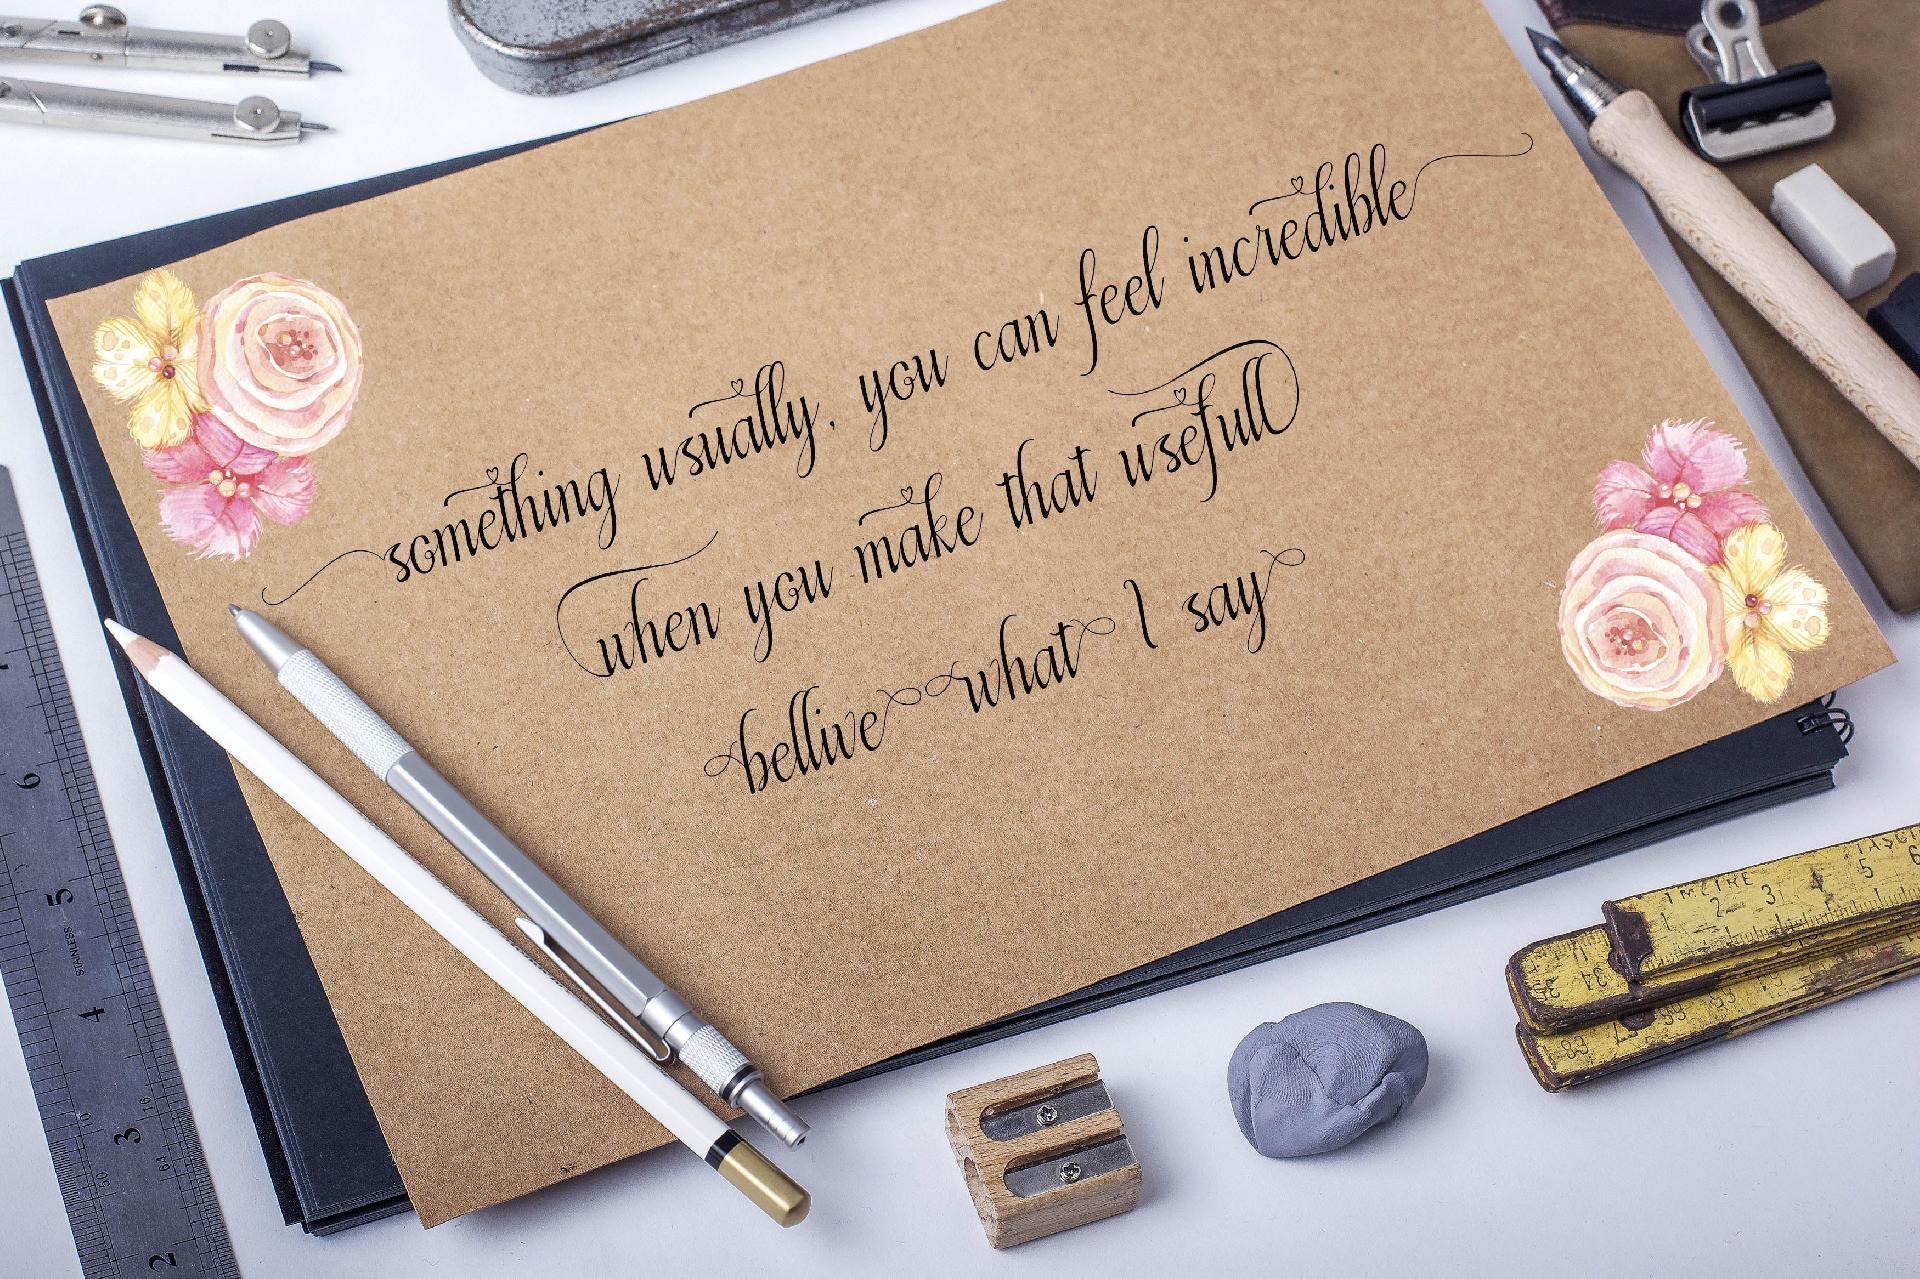 something usually, you can feel incredible
when you make that usefull
bellive what I say
6
5
STAINLESS
4
3
2
10
16
50
64
1 METRE
1 2 3 4 5 6
34